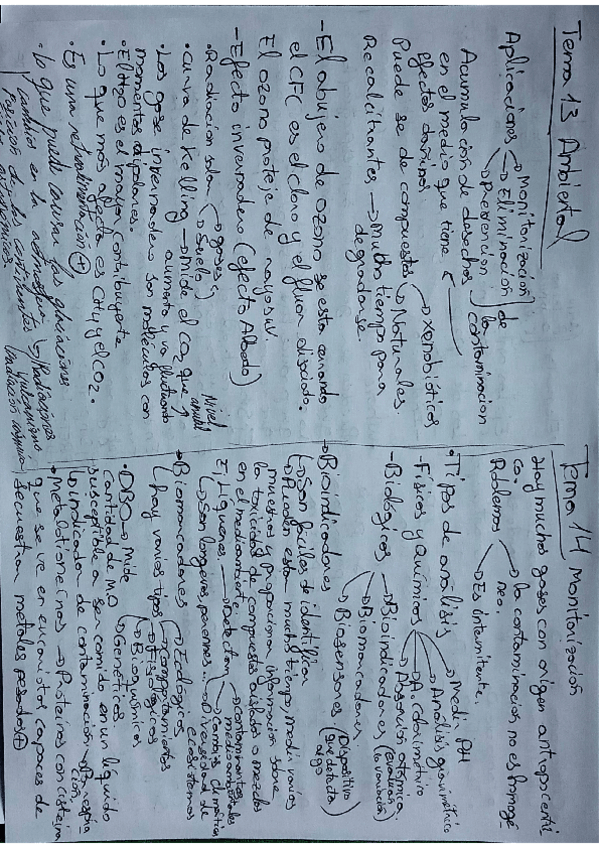 Tema 13 Ambiental
Aplicaciones → Monitorización
→ Eliminación
→ Prevención
de la contaminacion
Acumulación de desechos
en el medio que tiene
efectos dañinos
Puede se de compuestos → Xenobióticos
→ Naturales.
Recalcitrantes → Mucho tiempo para
degradarse.
- El abujero de ozono se esta cerrando
el CFC es el cloro y el fluor
El ozono proteje de rayos UV.
- Efecto invernadero (efecto Albedo)
• Radiacion solar → gases
→ Suelo
• curva de Kelling → Mide el CO2 que
aumenta y va fluctuando
Nivel anual
• Los gase invernadero son moléculas con
momentos dipolares.
• El H2O es el mayor contribuyente
• Lo que más afecta es CH4 y el CO2.
• Es una retroalimentación +
• lo que puede causar las glaciaciones
cambios en la
Posición de los continentes
Tema 14 Monitorización
Hay muchos gases con origen antropocentri
co.
Problemas → la contaminación no es homogé
neo.
→ Es intermitente.
• Tipos de análisis
- Físicos y Químicos → Medir PH
→ Análisis gravimétrico
→ Absorción atómica
- Biologicos → Bioindicadores (evaluan la variación)
→ Biomarcadores.
→ Biosensores (Dispositivo que detecta algo)
• Bioindicadores
→ Son fáciles de identificar
→ Pueden estar mucho tiempo, medir varios
muestras y proporciona información sobre
la toxicidad de compuestos aislados o mezclas
en el medioambiente
Ej Líquenes → Detectan → contaminantes medioambientales
→ Cambios climáticos
→ Diversidad de ecosistemas
→ Son longevos perennes...
• Biomarcadores → Ecológicos
hay varios tipos → comportamientos
→ Fisiológicos
→ Bioquímicos
→ Genéticos.
• DBO → Mide
cantidad de M.O
susceptible a ser comido en un líquido
→ indicador de contaminación
• Metalotioneinas → Proteínas con cisteina
que se ve en eucariotas capaces de
secuestran metales pesados +